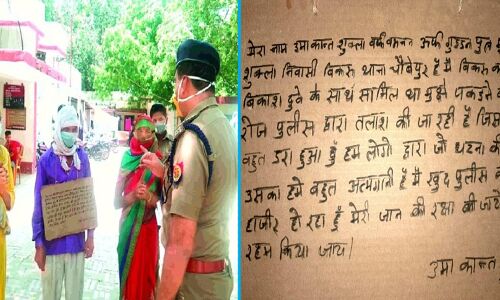 मेरा नाम उमाकान्त शुक्ला वर्फ बउवन उर्फ गुड्डन पुत्र
शुक्ला निवासी बिकरू थाना चौबेपुर हूँ मैं बिकरू का
विकाश दुबे के साथ सामिल था मुझे पकड़ने
रोज पुलीस द्वारा तलाश की जा रही है जिस
बहुत डरा हुआ हूँ हम लोगो द्वारा जो घटना की
उसका हमें बहुत आत्मग्लानी है मैं खुद पुलीस के
हाजीर हो रहा हूँ मेरी जान की रक्षा की जाये
रहम किया जाय।
उमा कान्त